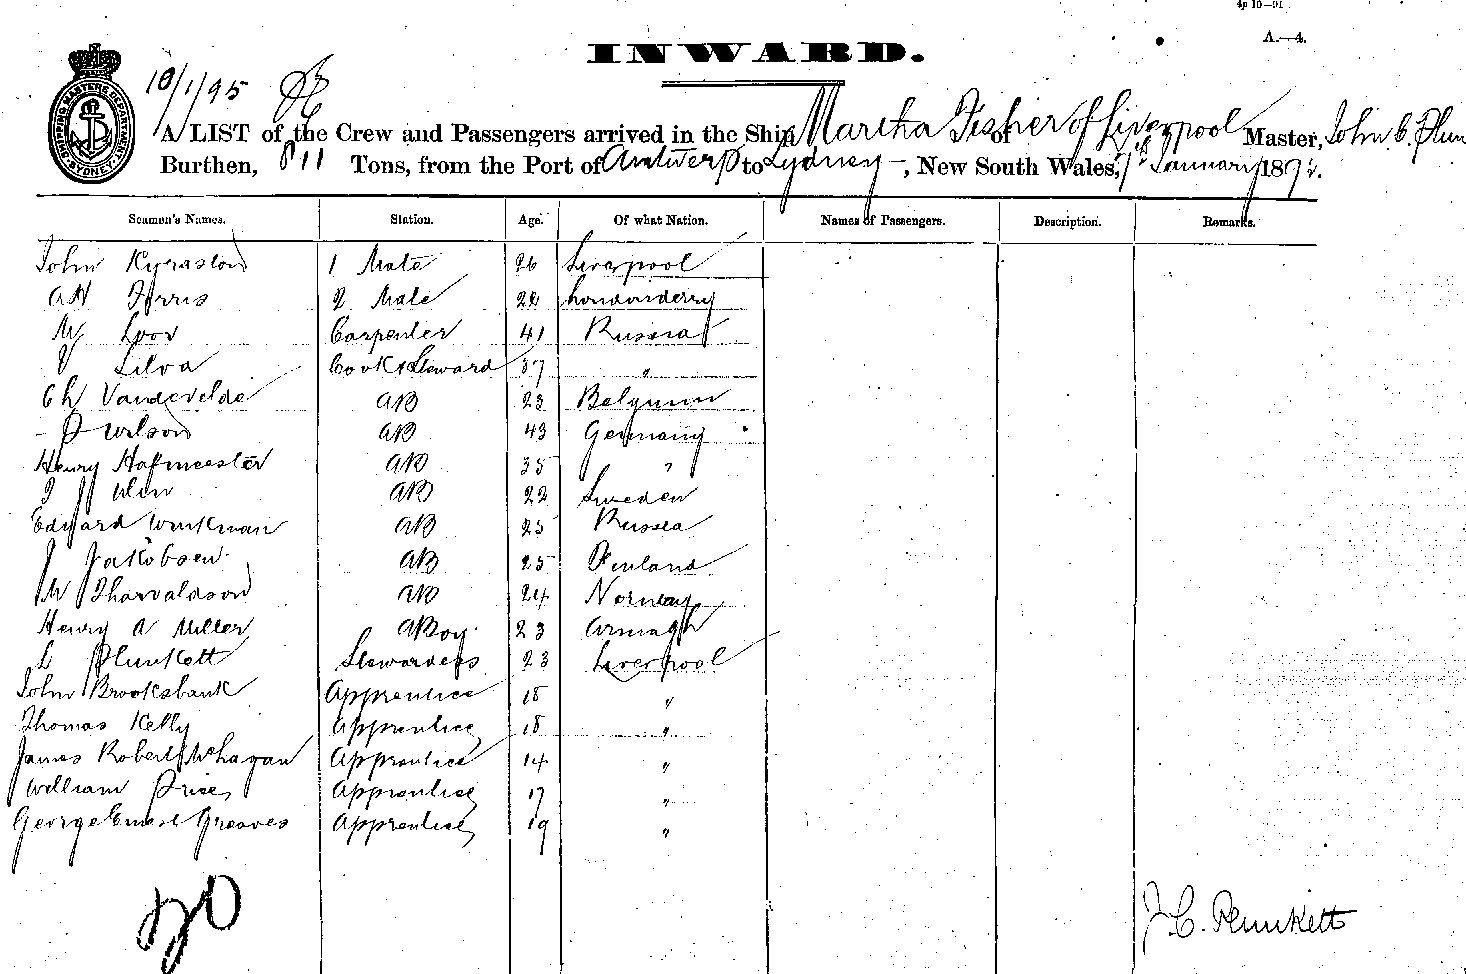 4p 10—91
A.—4.
INWARD.
10/1/95
SHIPPING MASTERS DEPARTMENT. SYDNEY
A LIST of the Crew and Passengers arrived in the Ship Martha Fisher of Liverpool Master, John C. Plun
Burthen, 811 Tons, from the Port of Antwerp to Sydney, New South Wales, January 189
Seamen's Names. Station. Age. Of what Nation. Names of Passengers. Description. Remarks.
John Kynaston 1 Mate 26 Liverpool
AH Ferris 2 Mate Londonderry
Carpenter 41 Russia
Silva Cook & Steward 37 "
Ch Vandevelde AB 23 Belgium
Wilson AB 43 Germany
Henry Hofmeester AB 35 "
AB 22 Sweden
Edward Winkman AB 25 Russia
J Jakobsen AB 25 Finland
M Tharvaldson AB 24 Norway
Henry A Miller 23 Armagh
L Plunkett Stewardess 23 Liverpool
John Brooksbank Apprentice 18 "
Thomas Kelly Apprentice 18 "
James Robert McHagan Apprentice 14 "
William Price Apprentice 17 "
George Ernest Greaves Apprentice 19 "
J. C. Plunkett